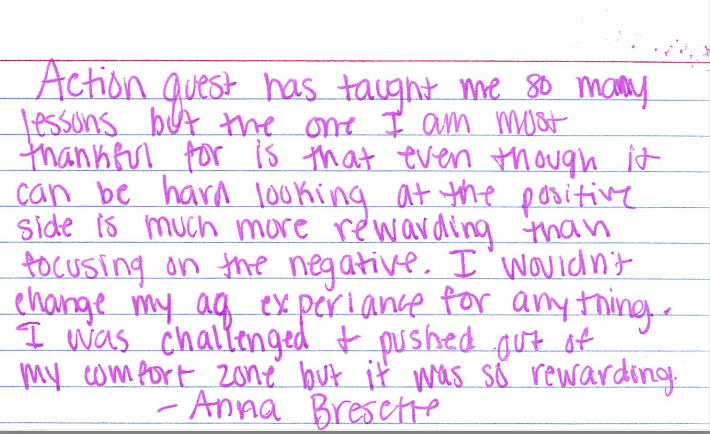 Action Quest has taught me so many
lessons but the one I am most
thankful for is that even though it
can be hard looking at the positive
side is much more rewarding than
focusing on the negative. I wouldn't
change my aq experiance for anything.
I was challenged + pushed out of
my comfort zone but it was so rewarding.
- Anna Bresette